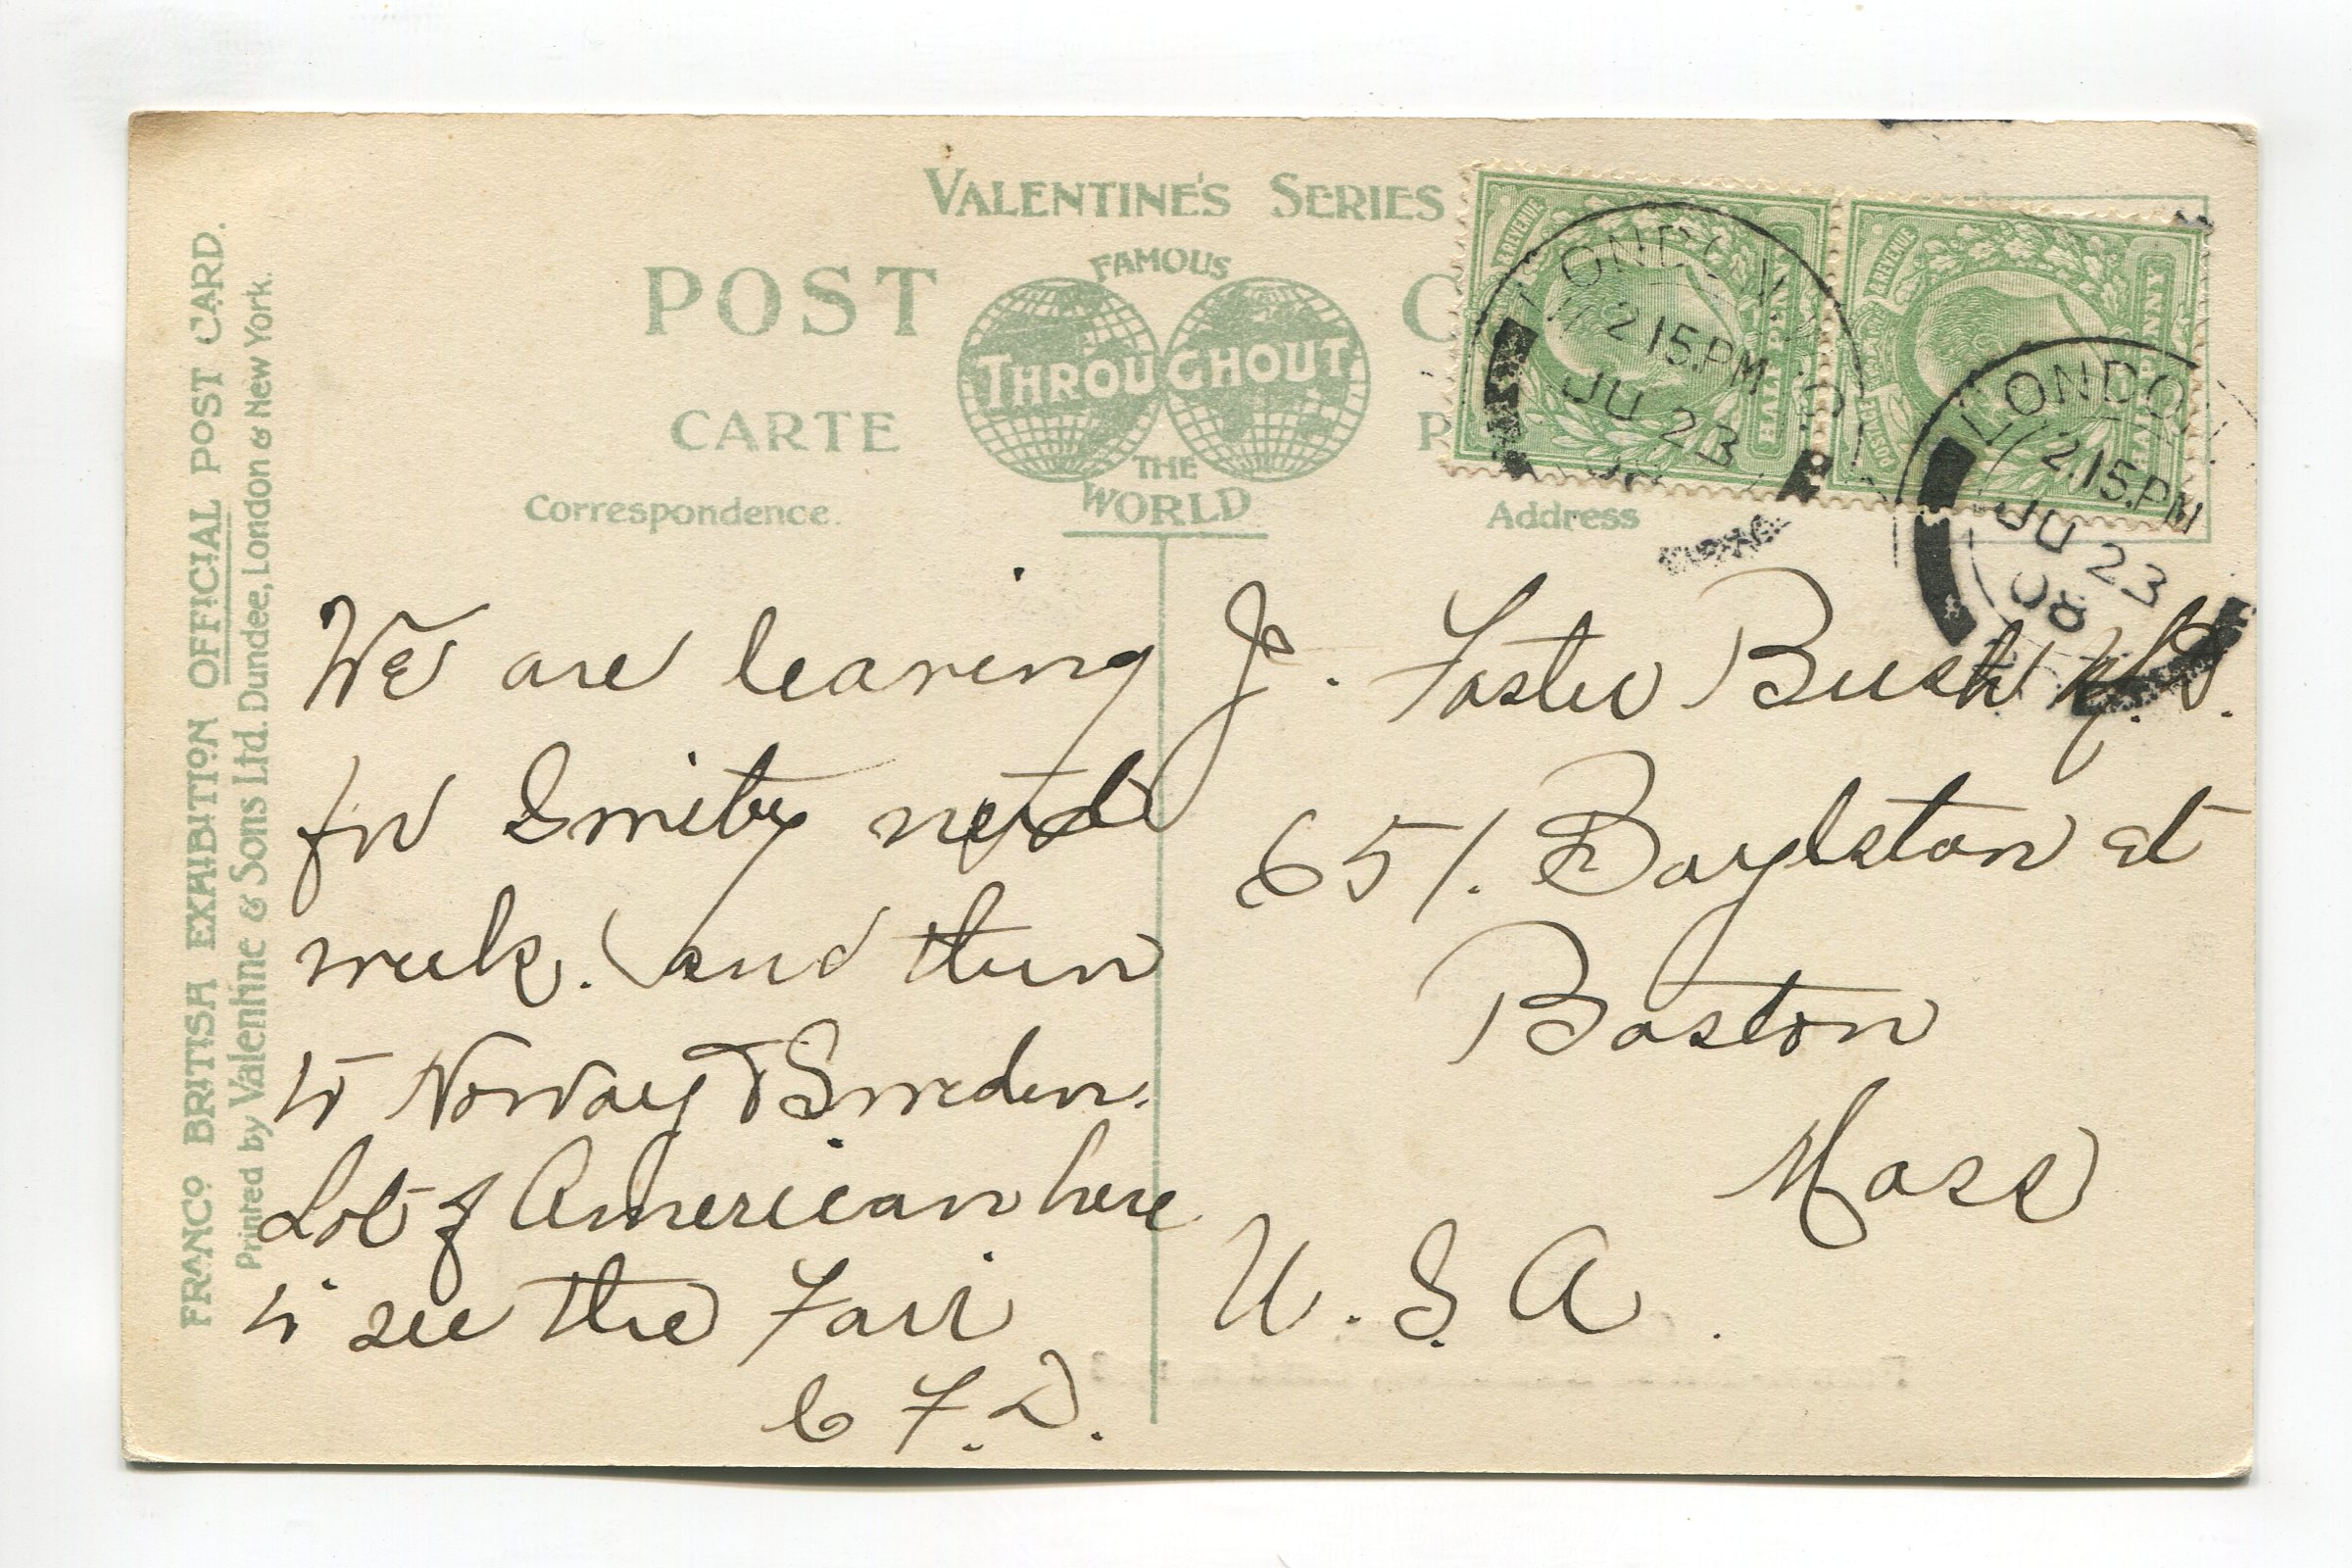 VALENTINE'S SERIES
FAMOUS
POST C
THROUGHOUT
CARTE P
THE
WORLD
Correspondence. Address
REVENUE
HALFPENNY
LONDON
2.15.PM
JU 23
REVENUE
POSTAGE
HALFPENNY
LONDON
2.15.PM
JU 23
08
FRANCO BRITISH EXHIBITION OFFICIAL POST CARD.
Printed by Valentine & Sons Ltd. Dundee, London & New York.
We are leaving
for next
week. and then
to Norway & Sweden.
Lot of American here
to see the Fair
C F. D.
J. Foster Bush
651. Boylston st
Boston
Mass
U. S. A.